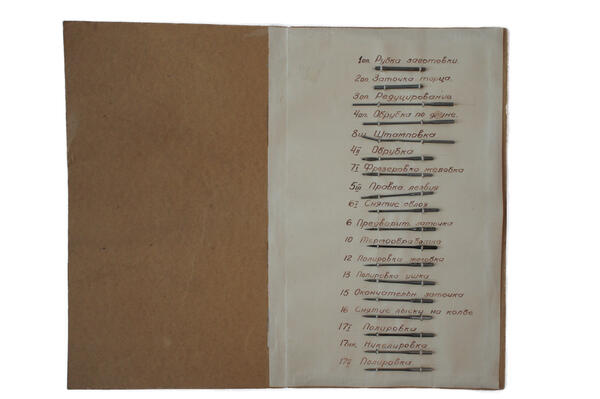 1оп. Рубка заготовки.
2оп. Заточка торца.
3оп. Редуцирование
4оп. Обрубка по длине.
8ш. Штамповка
4II Обрубка
7I Фрезеровка желобка
5III Правка лезвия
6I Снятие облоя
6 Предварит. заточка
10 Термообработка
12 Полировка желобка
13 Полировка ушка
15 Окончательн. заточка
16 Снятие лыску на колбе
17I Полировка
17ник. Никелировка
17II Полировка